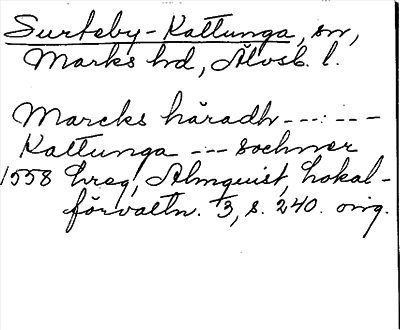 Surteby-Kattunga, sn,
Marks hd, Älvsb. l.
Marcks häradh --- : ---
Kattunga --- sochner
1558 hreg, Almquist, Lokal-
förvaltn. 3, s. 240. orig.